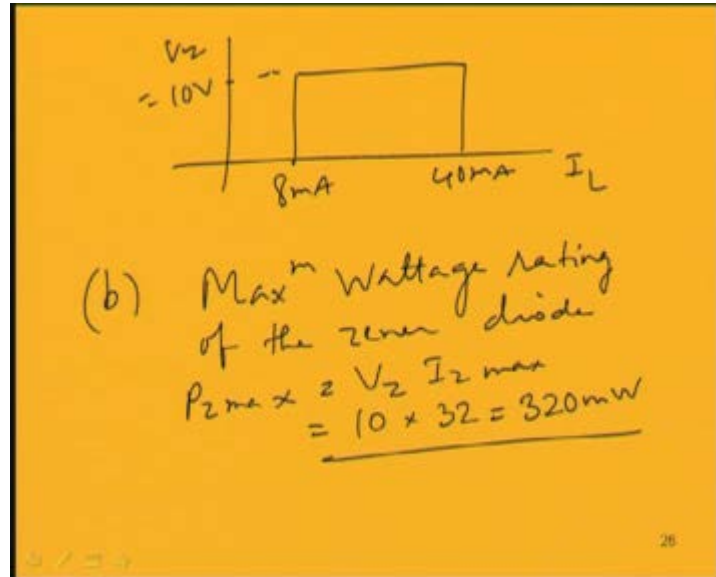 Vz
= 10V
8mA
40mA
IL
(b) Maxm Wattage rating
of the zener diode
Pzmax = Vz Iz max
= 10 x 32 = 320mW
26